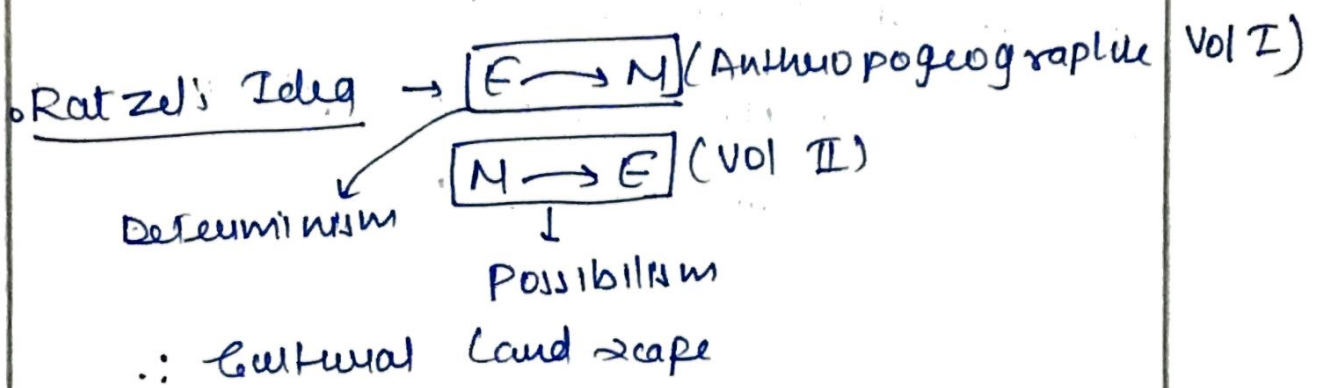 Ratzel's Idea → E → M (Anthropogeographie Vol I)
M → E (Vol II)
Determinism
↓
Possibilism
∴ Cultural Landscape